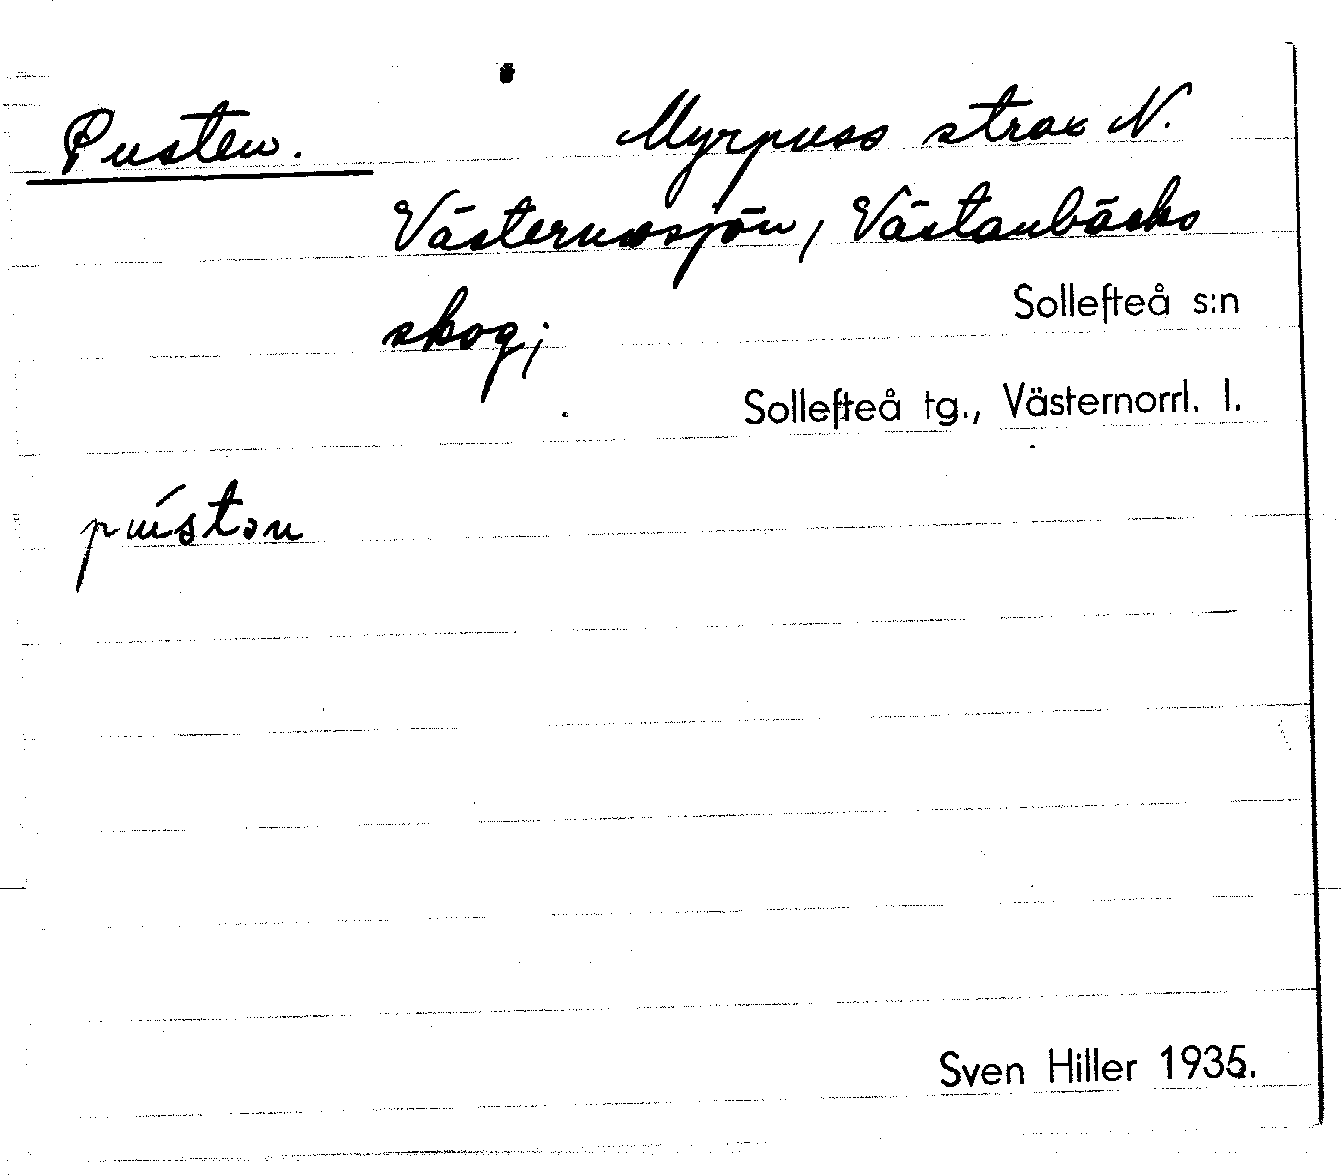 Pusten. Myrpuss strax N.
Västernossjön, Västanbäcks
skog;
Sollefteå s:n
Sollefteå tg., Västernorrl. l.
pústən
Sven Hiller 1935.